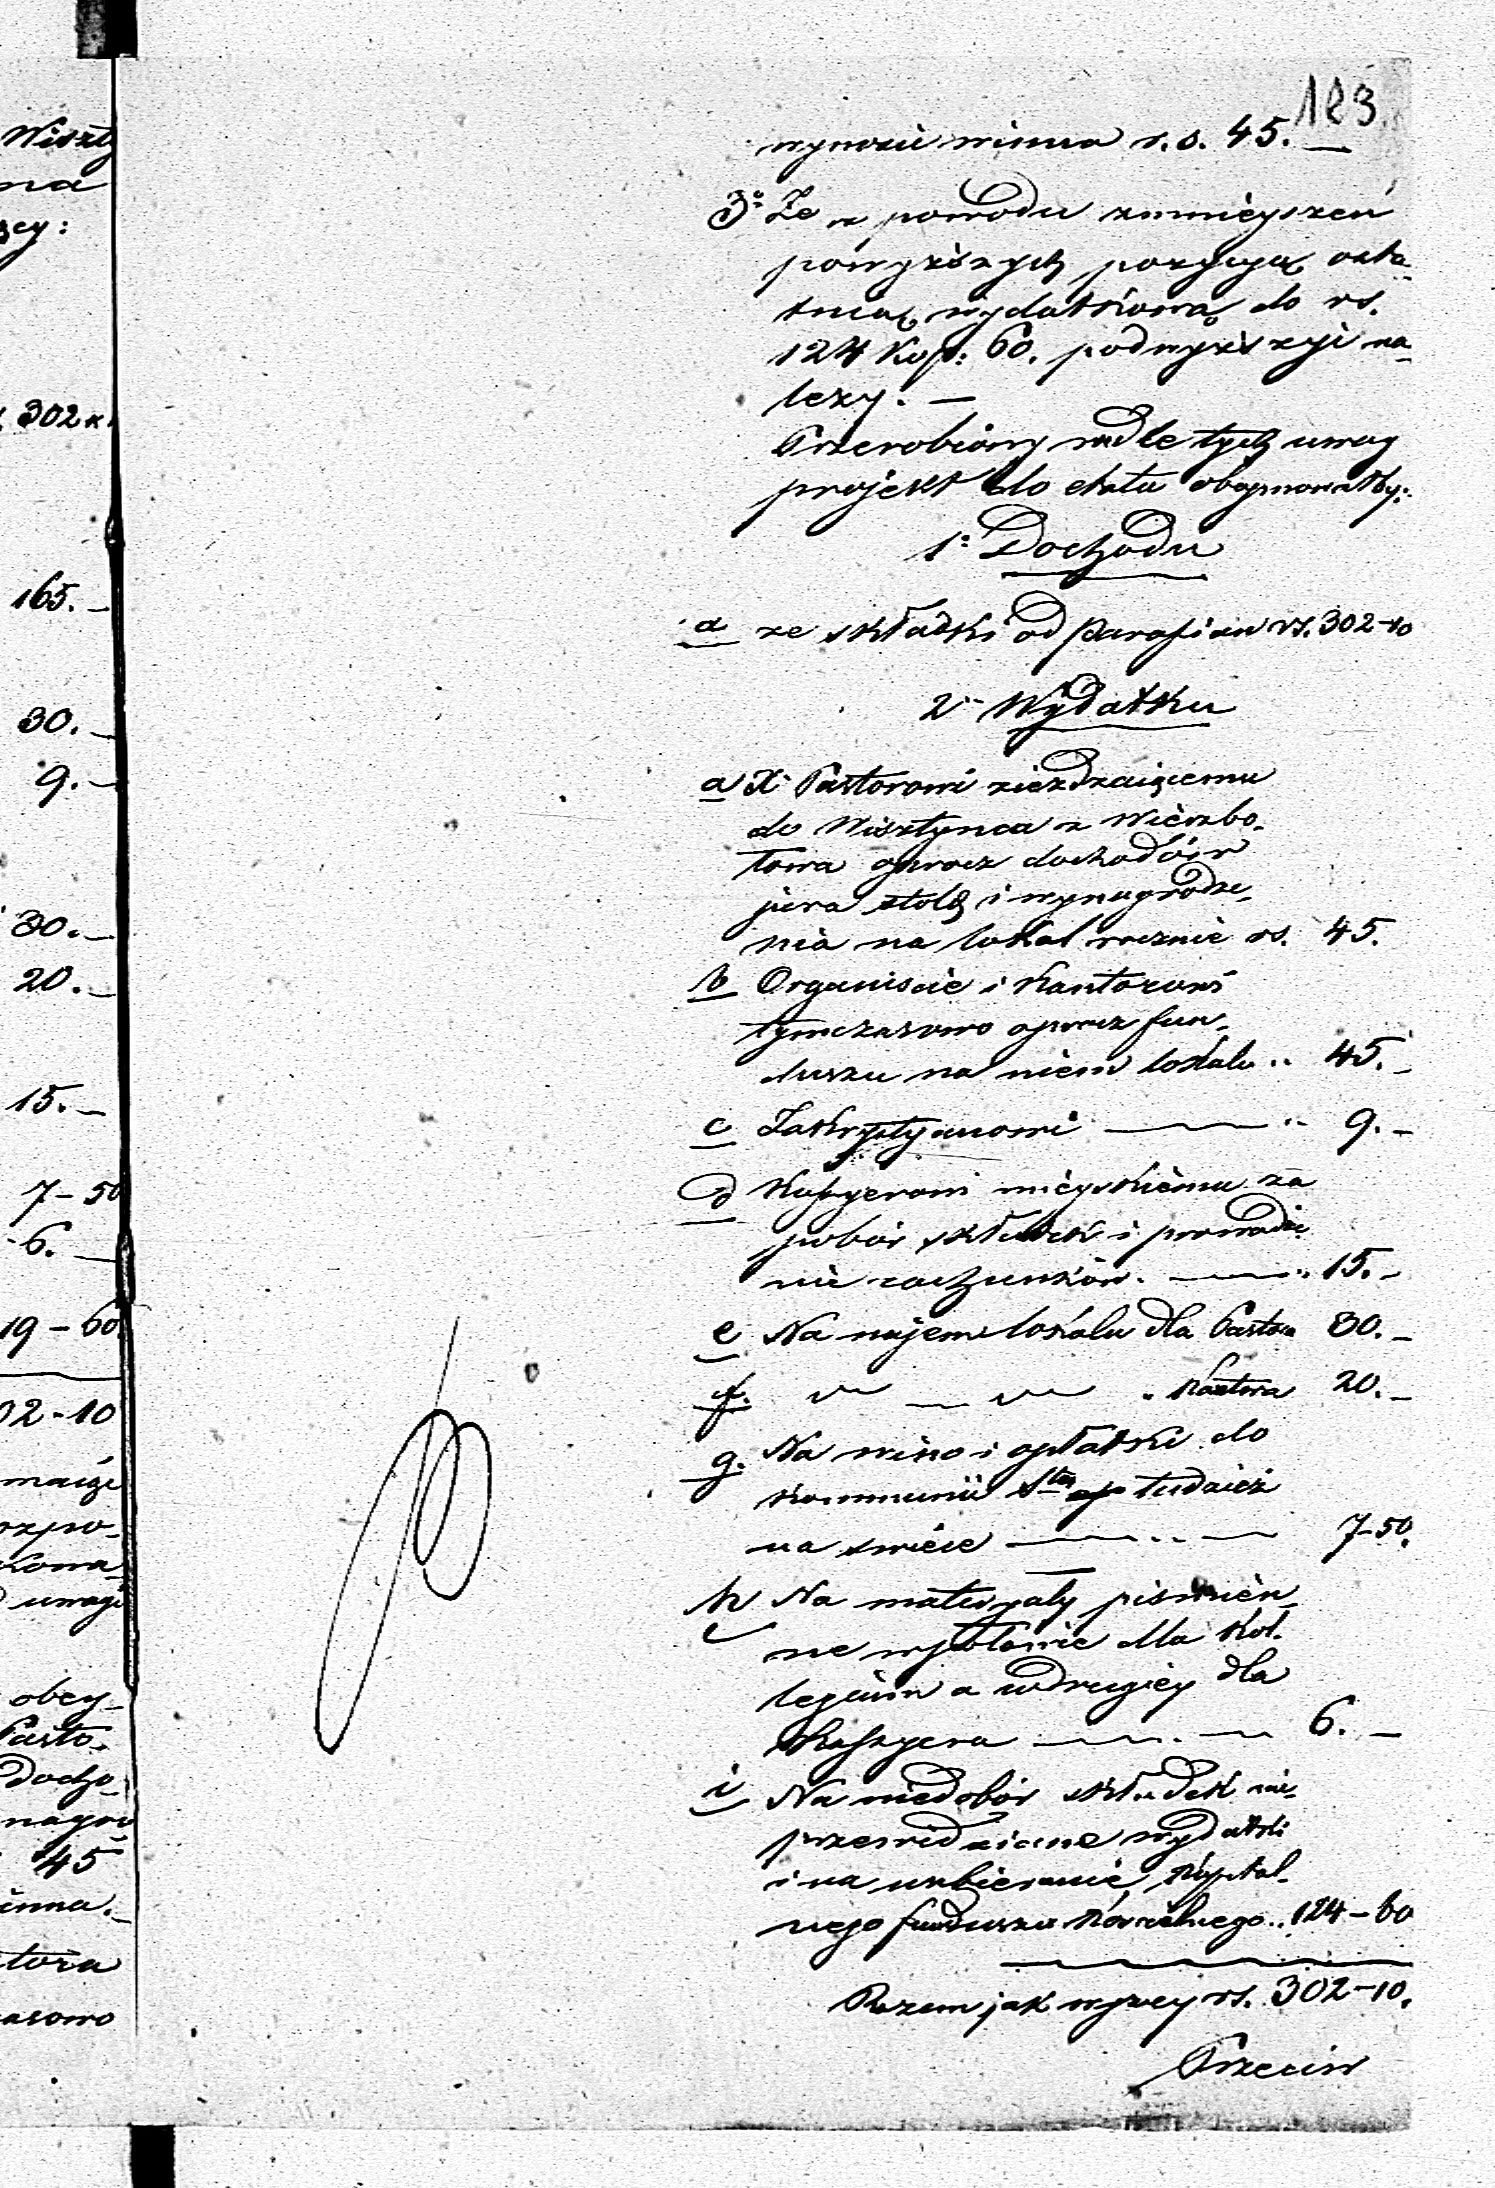 Wiszty
na
ący:
302 k.
165. –
30. –
9. –
30. –
20. –
15. –
7 – 50
6. –
19 – 60
02 – 10
kowa
uwagi
obey-
Pasto-
docho-
nagro
45
inna. –
tora
asowo
123.
wynosić winna r. s. 45. –
3° Że z powodu zmnieyszeń
powyższych pozycyą osta-
tnią wydatkową do rs.
124 Kop: 60. podwyższyć na-
leży. –
Przerobiony wedle tych uwag
projekt do etatu obeymowałby:
1° Dochodu
a ze składki od Parafian rs. 302–10
2° Wydatku
a X. Pastorowi zieżdzaiącemu
do Wisztynca z Wierzbo-
łowa oprocz dochodów
jura stolæ i wynagrodze-
nia na lokal rocznie rs. 45.
b Organiscie i Kantorowi
tymczasowo oprocz fun-
duszu na niem lokalu „ 45. –
c Zakrystyanowi – „ 9. –
d Kassyerowi mieyskiemu za
pobór składek i prowadze-
nie rachunków. – „ 15. –
e Na najem lokalu dla Pastora 30. –
f. „ – „ „ Kantora 20. –
g. Na wino i opłatki do
kommunii Stey tudzież
na swiéce – „ – 7–50.
h Na materyały pismien-
ne w połowie dla Kol-
legium a w drugiey dla
Kassyera – „ – 6. –
i Na niedobór składek nie-
przewidziane wydatki
i na uzbieranie Kapital-
nego funduszu Kościelnego „ 124–60
Razem jak wyzey rs. 302–10.
Przeciw